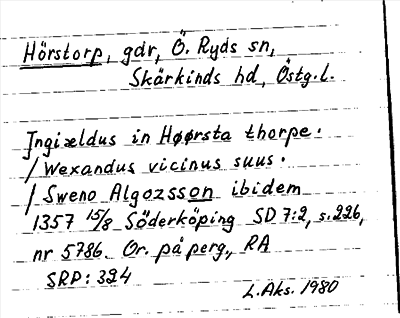 Hörstorp, gdr, Ö. Ryds sn,
Skärkinds hd, Östg.l.
Jngiældus in Høørsta thorpe.
/Wexandus vicinus suus.
/Sweno Algozsson ibidem
1357 15/8 Söderköping SD 7:2, s.226,
nr 5786. Or. på perg., RA
SRP: 324
L.Aks. 1980